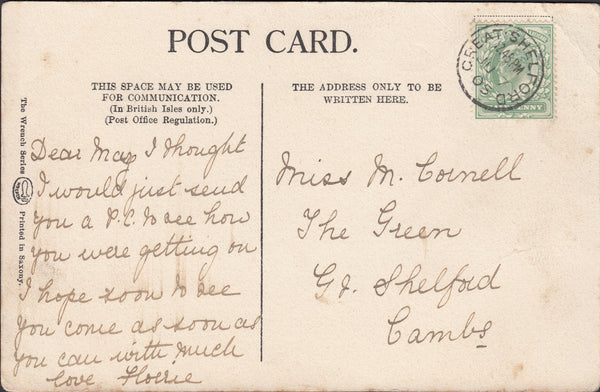 POST CARD.
THIS SPACE MAY BE USED
FOR COMMUNICATION.
(In British Isles only.)
(Post Office Regulation.)
THE ADDRESS ONLY TO BE
WRITTEN HERE.
The Wrench Series
Printed in Saxony.
Dear May I thought
I would just send
you a P.C. to see how
you were getting on
I hope soon to see
you come as soon as
you can with much
love Florrie
Miss M. Cornell
The Green
Gt. Shelford
Cambs
GREAT SHELFORD SO
PENNY